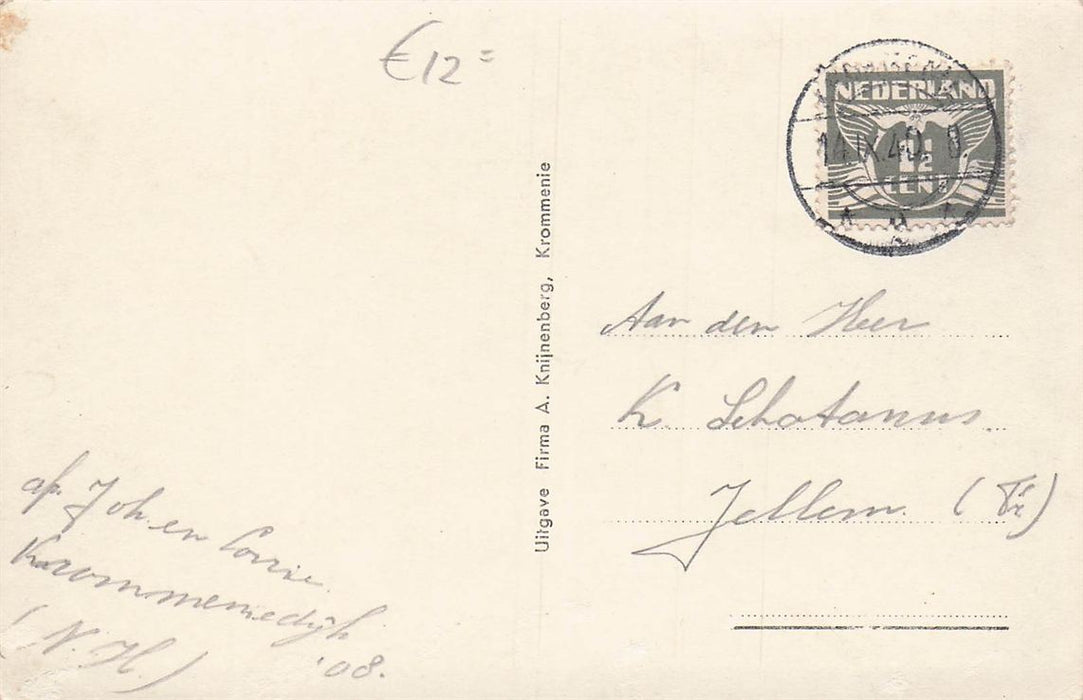 €12=
NEDERLAND
1½
CENT
14.IX.40. 8.
Uitgave Firma A. Knijnenberg, Krommenie
Aan den Heer
K. Schotanus
Jellem (Fr)
af. Joh en Corrie
Krommeniedijk
'08.
(N.H.)